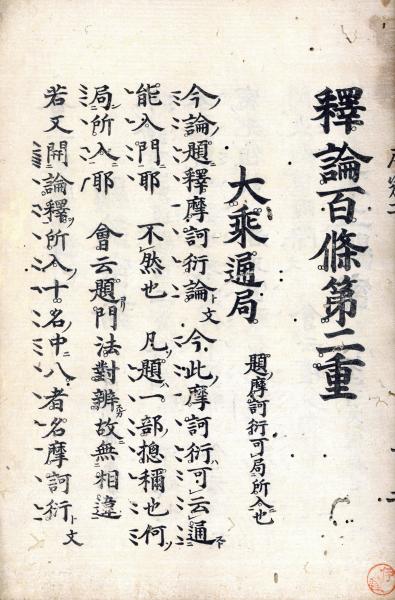 釋論百條第二重
大乘通局
題摩訶衍可局所入也
今論題釋摩訶衍論ト文 今此摩訶衍可云通
能入門耶 不然也 凡題一部揔稱也何
局所入耶 會云題門法對辨故無相違
若又開論釋所入十名中八者名摩訶衍ト文